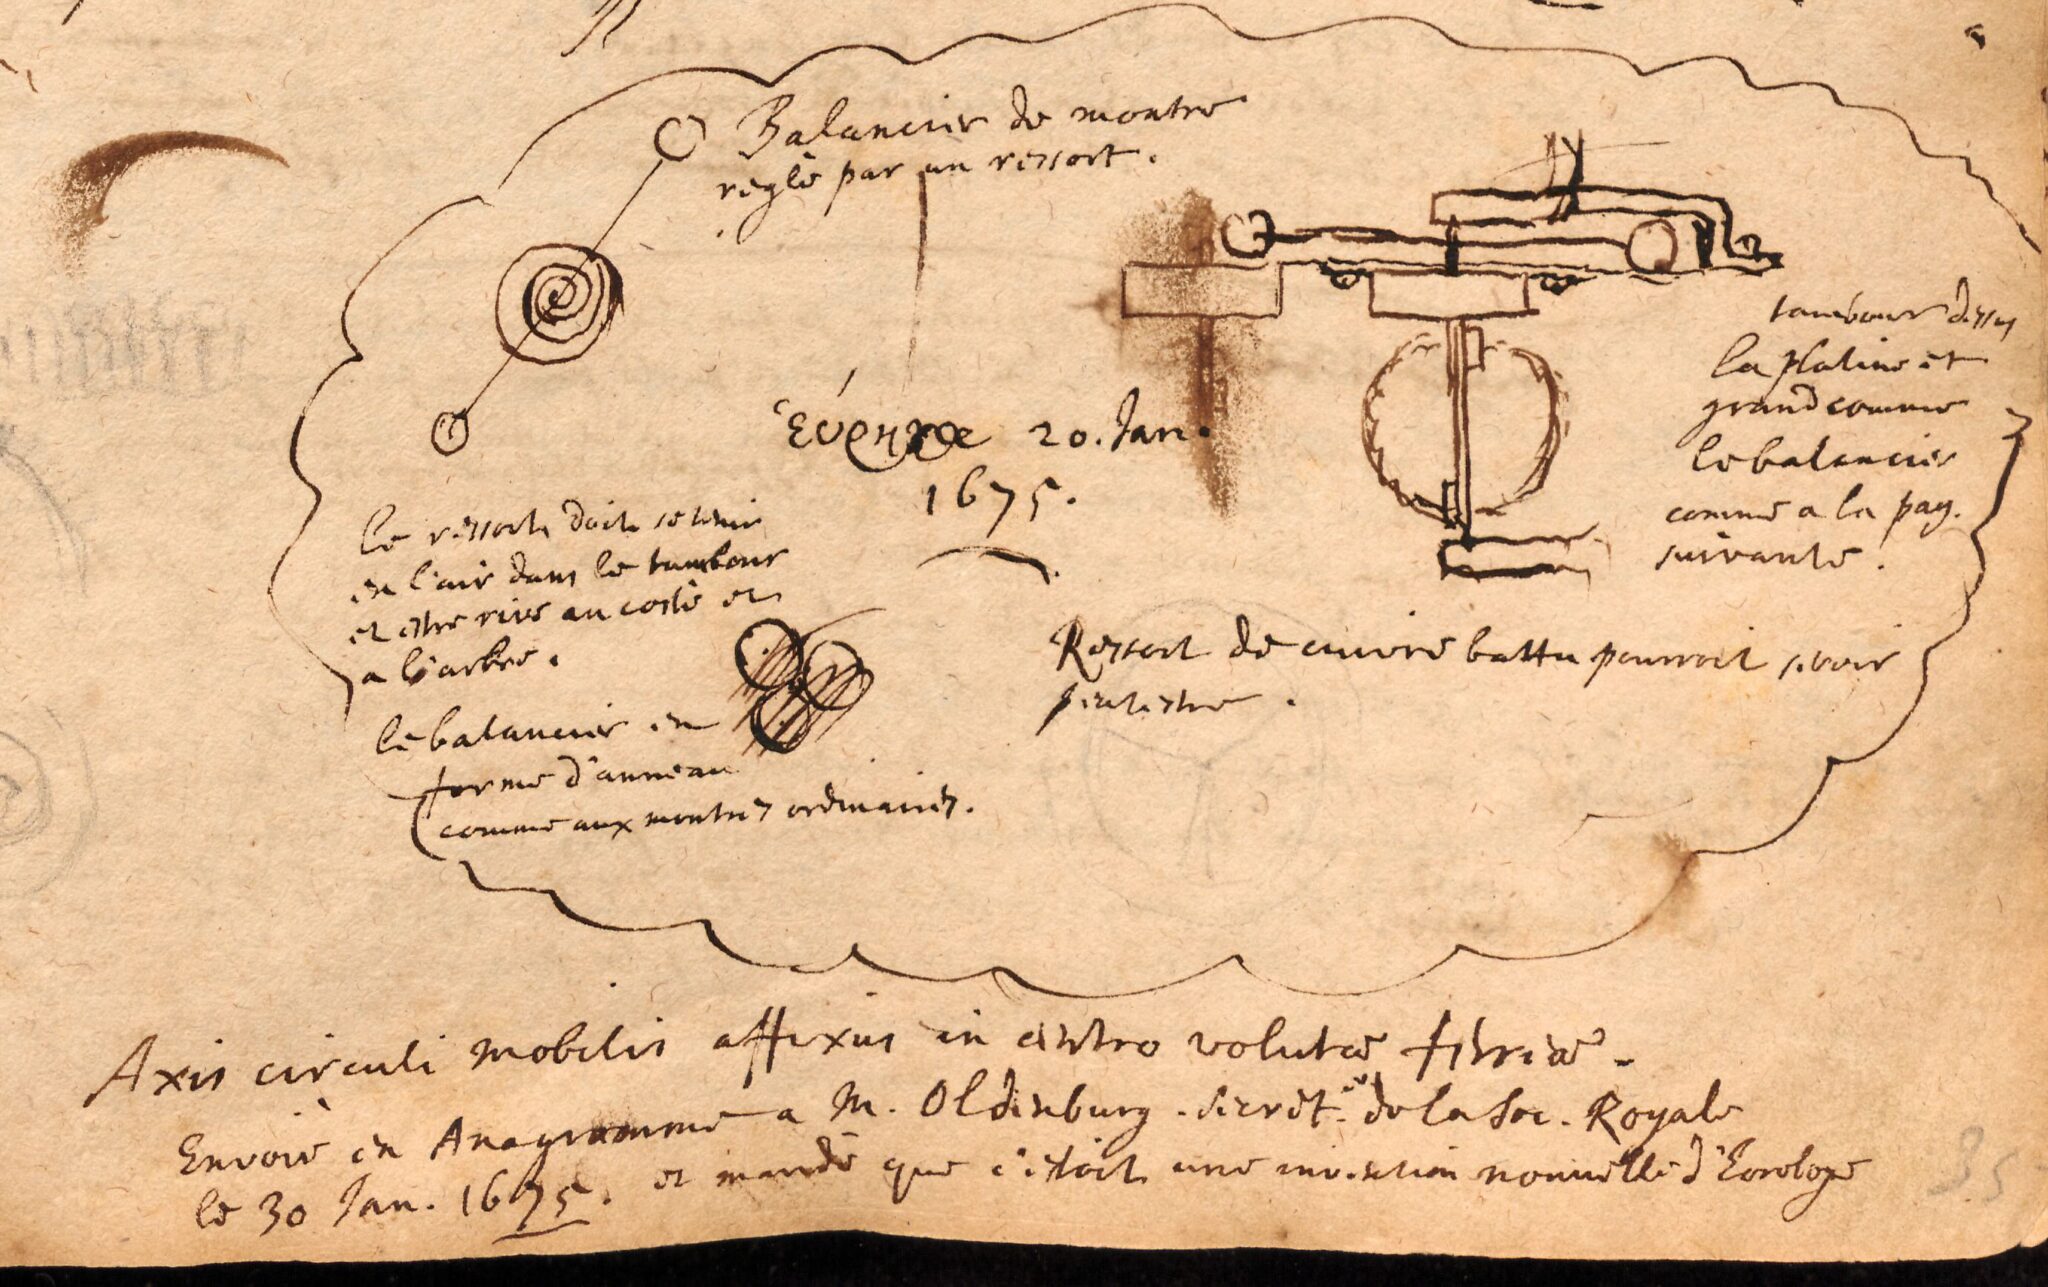 Balancier de montre
reglè par un ressort.
tambour dessus
la platine et
grand comme
le balancier
comme a la pag.
suivante.
εὕρηκα 20. Jan.
1675.
le ressort doit se tenir
en l'air dans le tambour
et estre rivè au costè et
a l'arbre.
le balancier en
forme d'anneau
comme aux montres ordinaires.
Ressort de cuivre battu pourroit servir
peutestre.
Axis circuli mobilis affixus in centro volutæ ferreæ.
Envoiè en Anagramme a M. Oldenburg. secret.re de la Soc. Royale
le 30 Jan. 1675. et mandè que c'estoit une invention nouvelle d'horologe
35